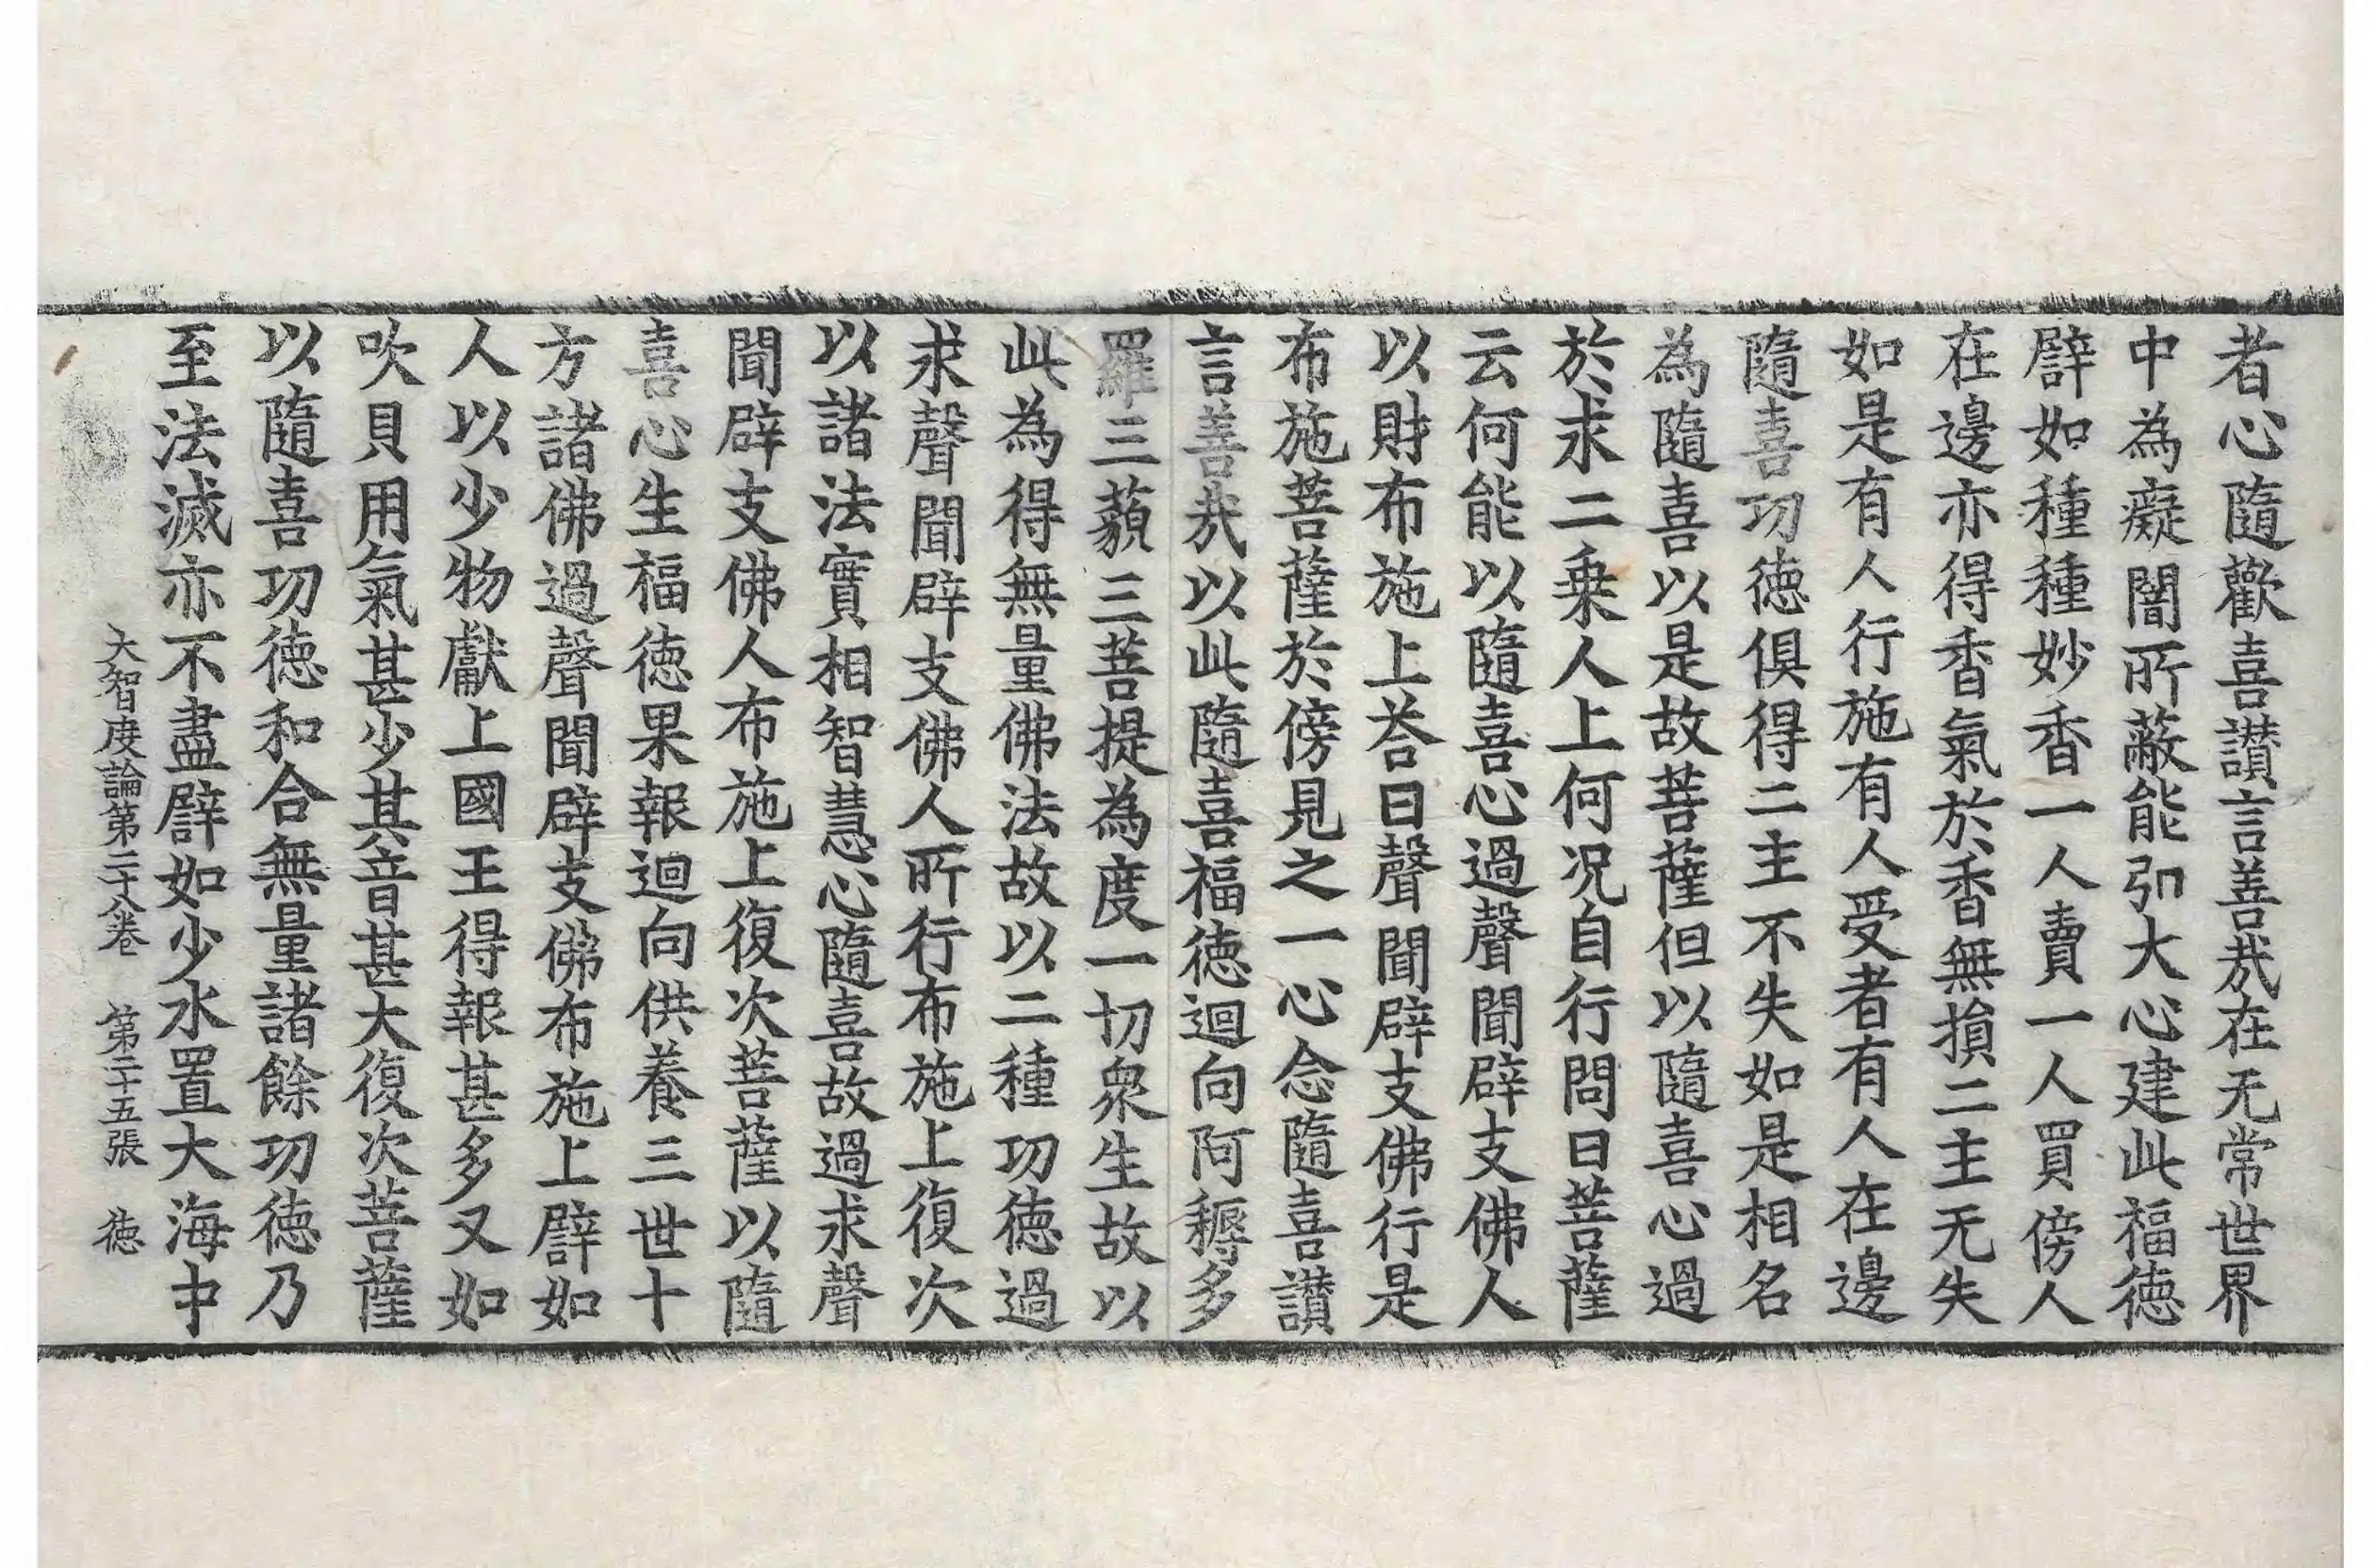 者心隨歡喜讃言善㢤在无常世界
中為癡闇所蔽能弘大心建此福徳
譬如種種妙香一人賣一人買傍人
在邊亦得香氣於香無損二主无失
如是有人行施有人受者有人在邊
隨喜功徳俱得二主不失如是相名
為隨喜以是故菩薩但以隨喜心過
於求二乗人上何況自行問曰菩薩
云何能以隨喜心過聲聞辟支佛人
以財布施上荅曰聲聞辟支佛行是
布施菩薩於傍見之一心念隨喜讃
言善㢤以此隨喜福徳迴向阿耨多
羅三藐三菩提為度一切衆生故以
此為得無量佛法故以二種功徳過
求聲聞辟支佛人所行布施上復次
以諸法實相智慧心隨喜故過求聲
聞辟支佛人布施上復次菩薩以隨
喜心生福徳果報迴向供養三世十
方諸佛過聲聞辟支佛布施上譬如
人以少物獻上國王得報甚多又如
吹貝用氣甚少其音甚大復次菩薩
以隨喜功徳和合無量諸餘功徳乃
至法滅亦不盡譬如少水置大海中
大智度論第二十八卷　第二十五張　徳